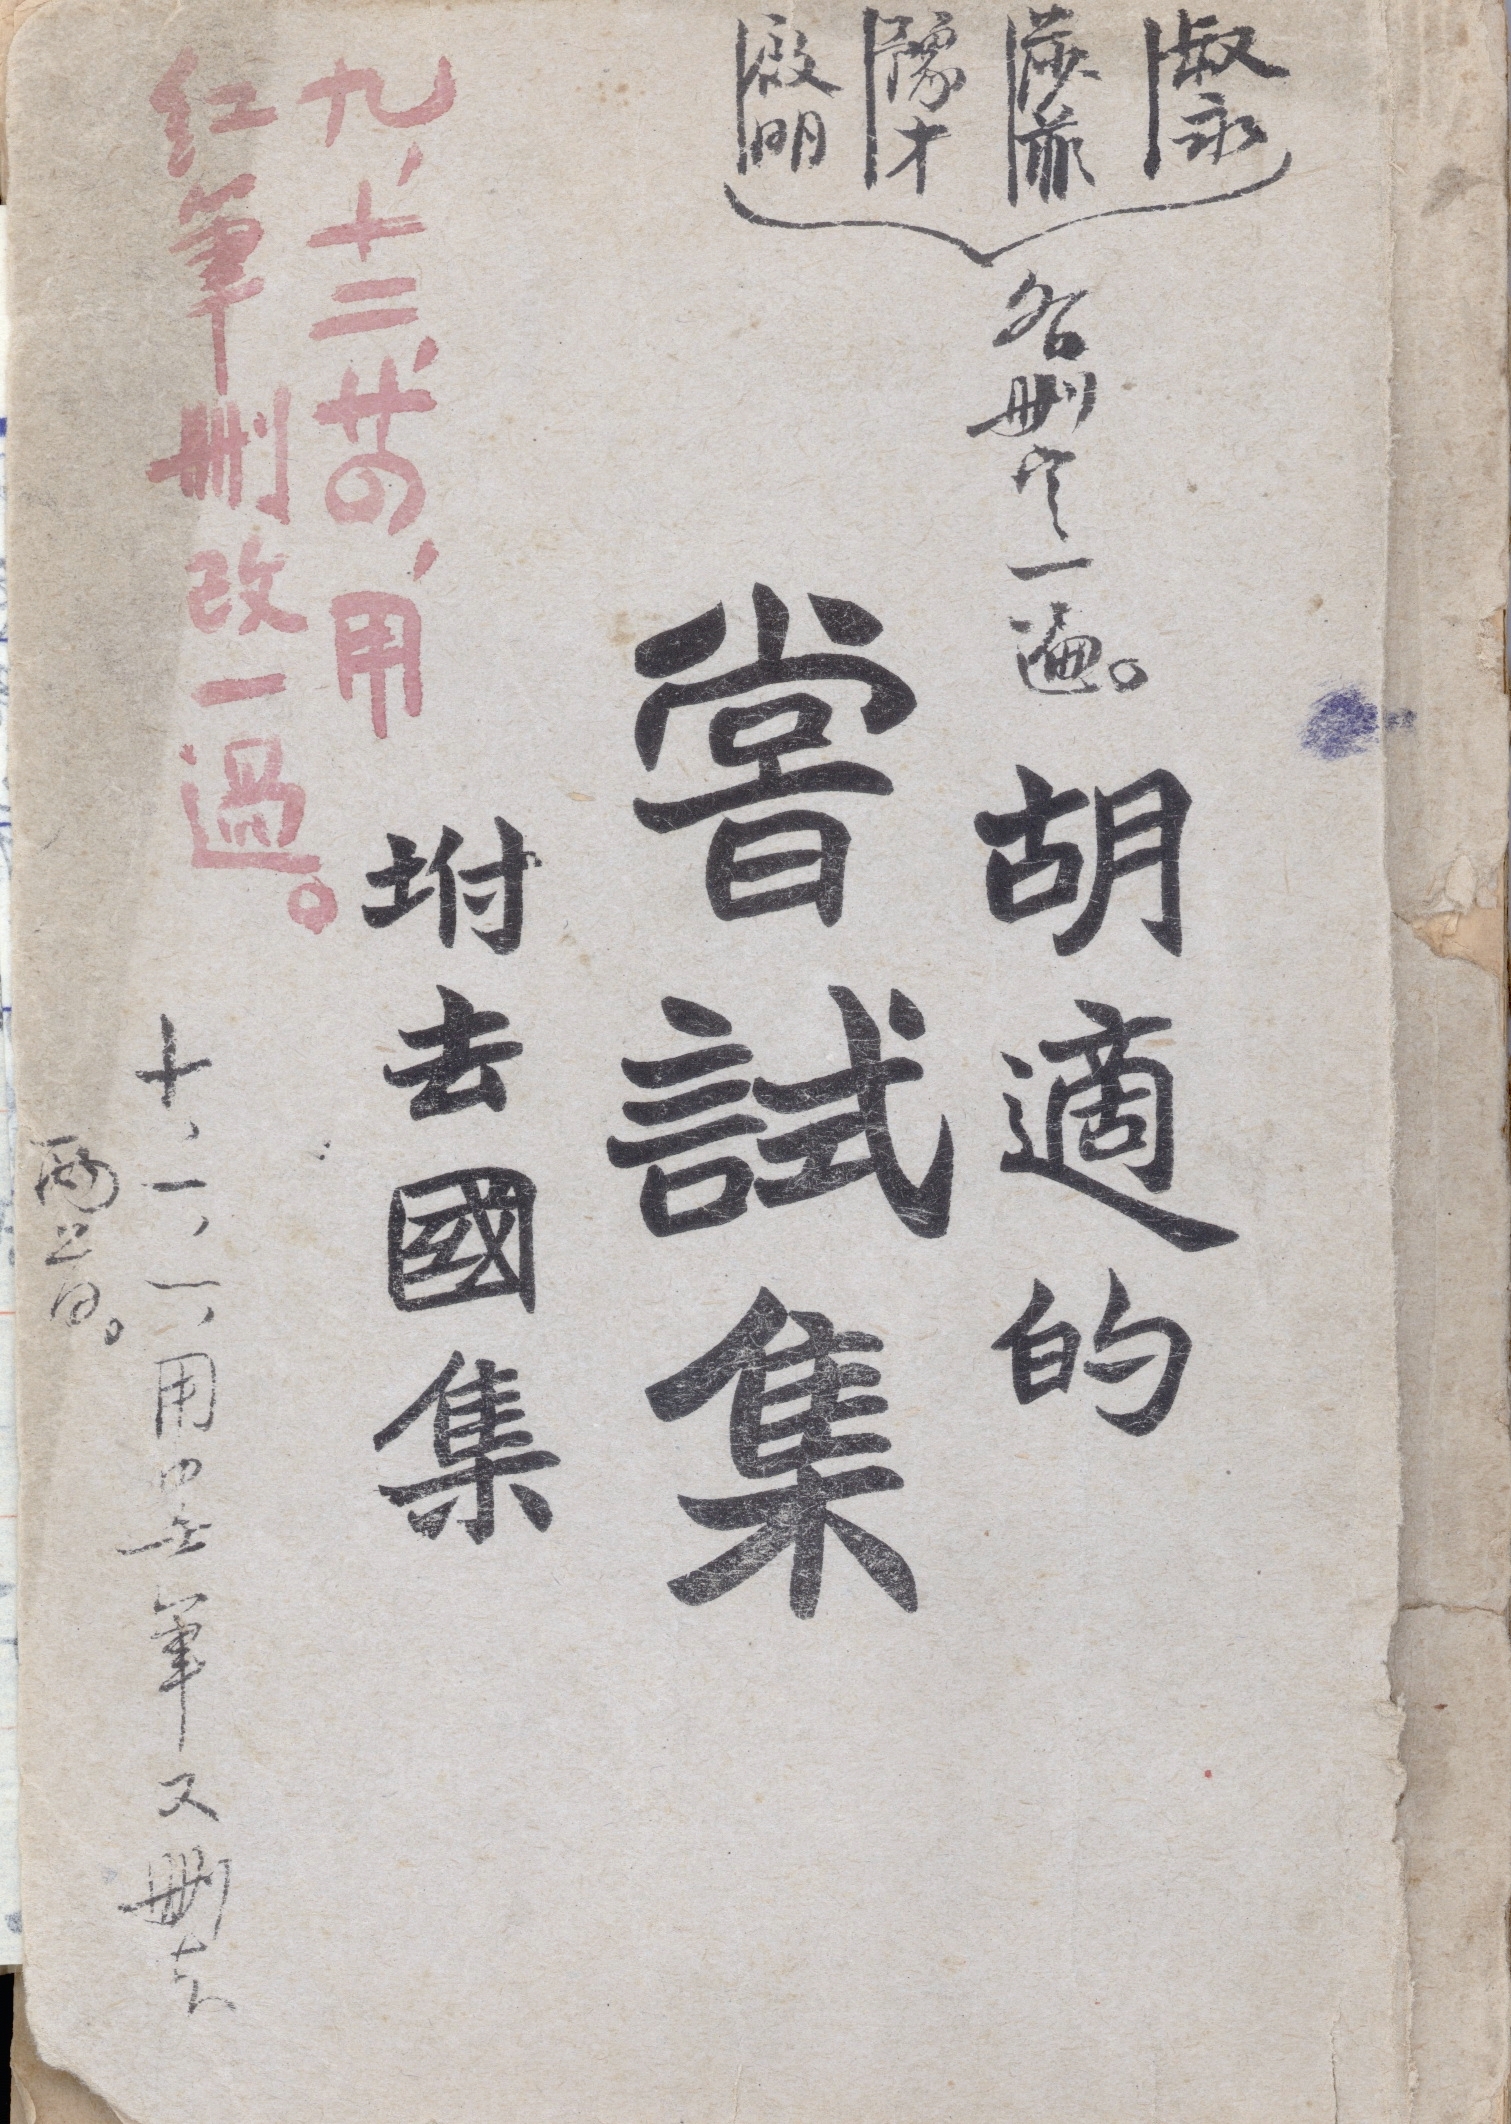 叔永
莎菲
豫才
啟明
各刪定一遍。
胡適的
嘗試集
坿去國集
九、十二、廿四、用
紅筆刪改一過。
十、一、一、用墨筆又刪去
兩首。